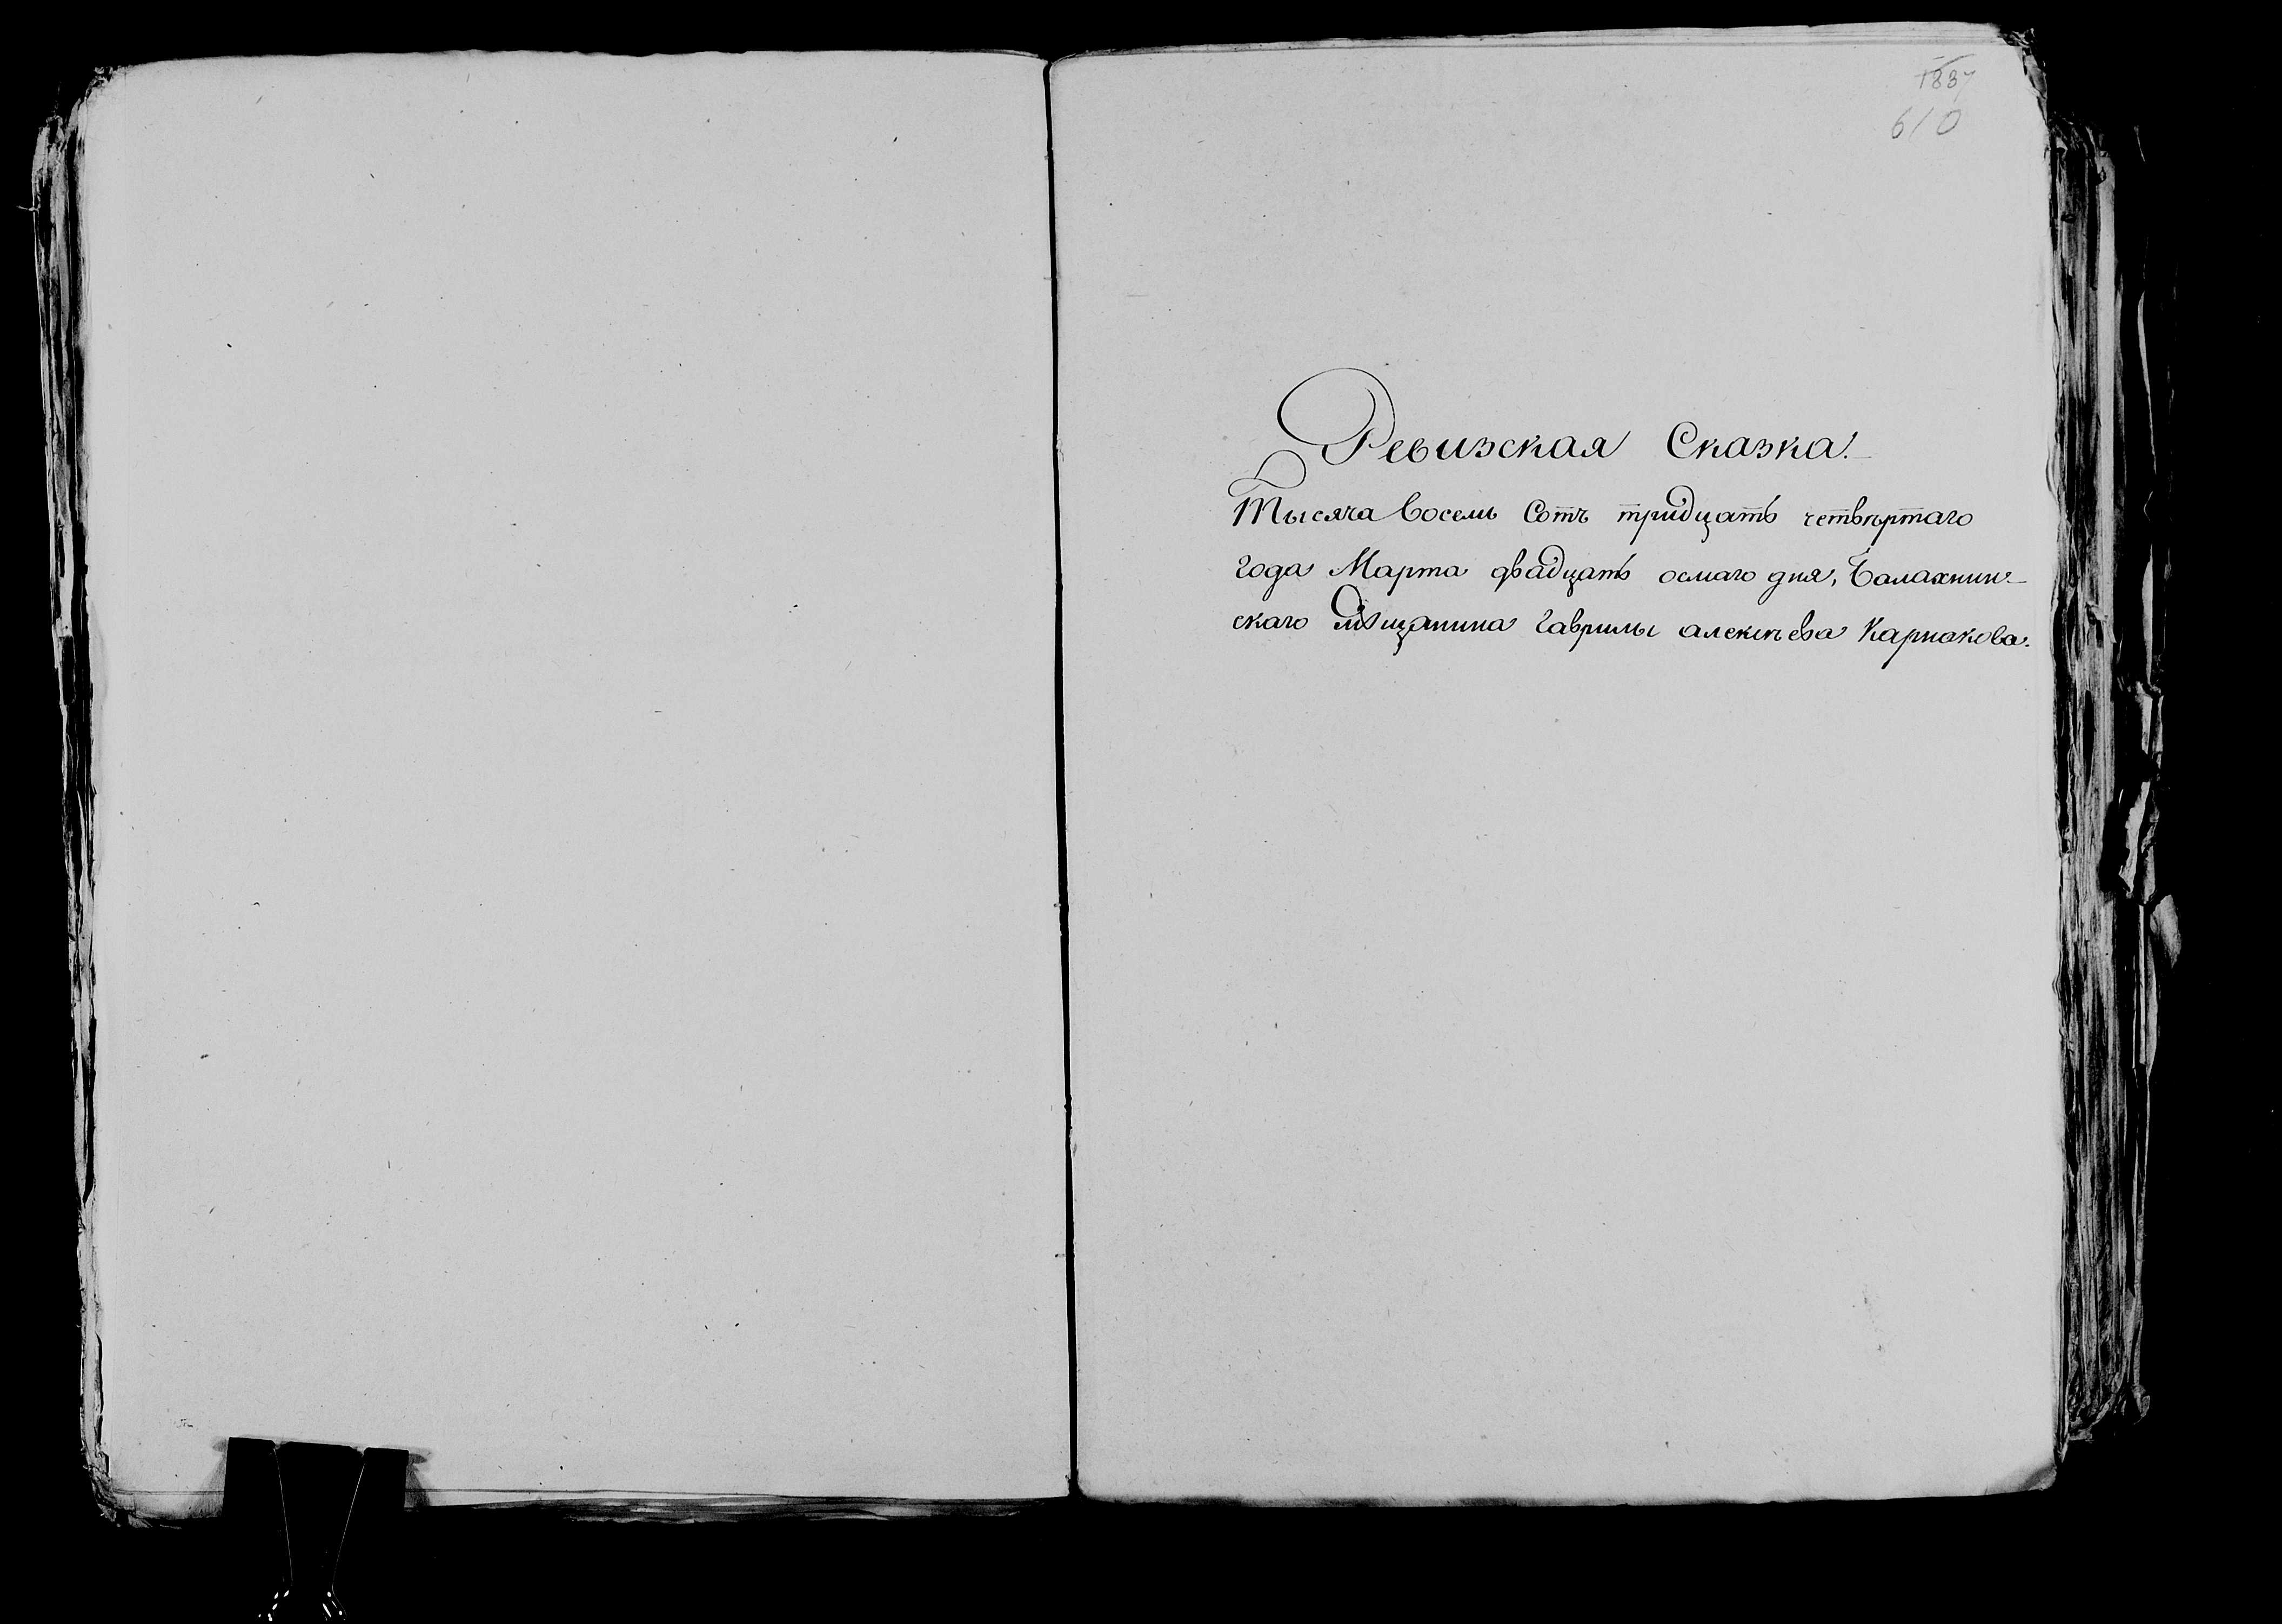 610
Ревизская Сказка.
Тысяча восемь Сотъ тридцать четвѣртаго
года Марта двадцать осмаго дня, Балахнин-
скаго Мѣщанина Гаврилы алексѣева Карпакова.